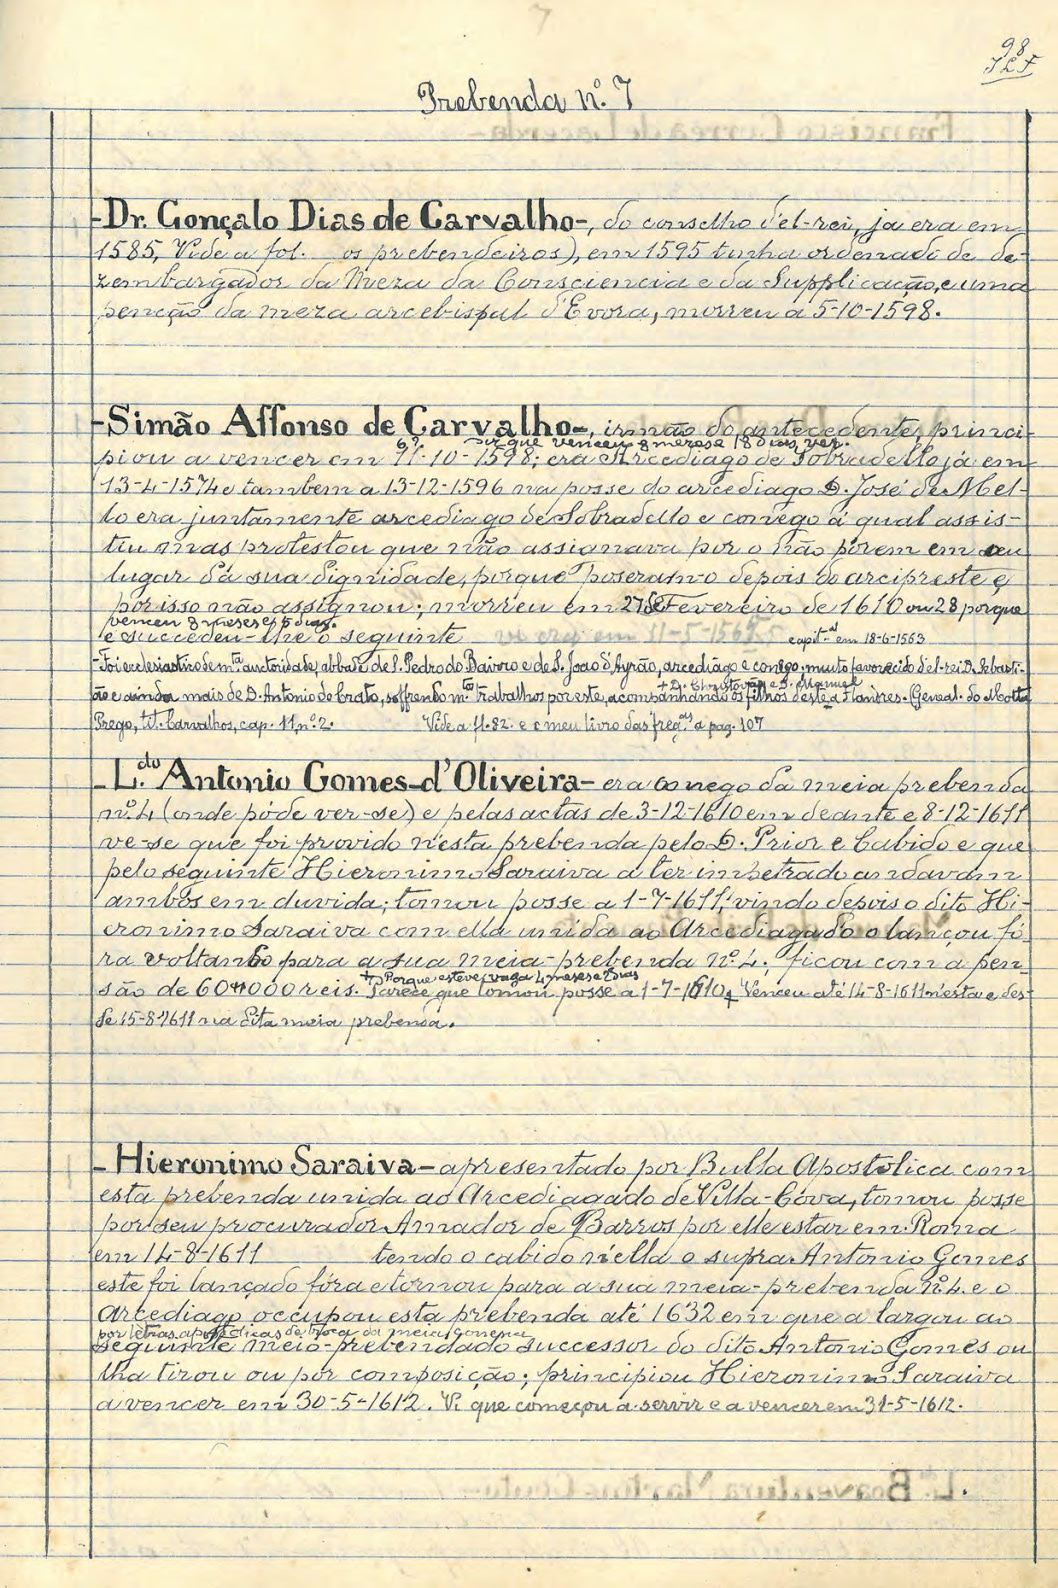 98
Prebenda nº. 7
-Dr. Gonçalo Dias de Carvalho-, do conselho d'el-rei, ja era em
1585, Vide a fol. os prebendeiros), em 1595 tinha ordenado de de-
zembargador da Meza da Consciencia e da Supplicação, e uma
penção da meza arcebispal d'Evora, morreu a 5-10-1598.
-Simão Affonso de Carvalho-, irmão do antecedente, princi-
porque venceu 8 mezes e 18 dias, ver.
piou a vencer em 11-10-1598; era Arcediago de Sobradello já em
13-4-1574 e tambem a 13-12-1596 na posse do arcediago D. José de Mel-
lo era juntamente arcediago de Sobradello e conego á qual assis-
tiu mas protestou que não assignava por o não pôrem em seu
lugar da sua dignidade, porque poseram-o depois do arcipreste e
por isso não assignou; morreu em 27 de Fevereiro de 1610 ou 28 porque
venceu 8 mezes e dias.
e succedeu-lhe o seguinte capit.al em 18-6-1563
-Foi ecclesiastico de m.ta auctoridade, abbade de S. Pedro do Bairro e de S. João d'Ayrão, arcediago e conego, muito favorecido d'el-rei D. Sebasti-
+ D. Christovão e D. Manuel
ão e ainda mais de D. Antonio do Crato, soffrendo m.tos trabalhos por este, acompanhando os filhos deste a Flandres. Geneal. do Motta
Prego, tt. Carvalhos, cap. 11, nº 2. Vide a fl. 82. e o meu livro das freg.as a pag. 107
-L.do Antonio Gomes d'Oliveira- era conego da meia prebenda
nº. 4 (onde póde ver-se) e pelas actas de 3-12-1610 em deante e 8-12-1611
ve-se que foi provido n'esta prebenda pelo D. Prior e Cabido e que
pelo seguinte Hieronimo Saraiva a ter impetrado andavam
ambos em duvida; tomou posse a 1-7-1611; vindo depois o dito Hi-
eronimo Saraiva com ella unida ao Arcediagado o lançou fó-
ra voltando para a sua meia-prebenda nº. 4; ficou com a pen-
+ Porque esteve vaga 4 mezes e dias
são de 60$000 reis. Parece que tomou posse a 1-7-1610+ Venceu até 14-8-1611 n'esta e des-
de 15-8-1611 na dita meia prebenda.
-Hieronimo Saraiva- apresentado por Bulla Apostolica com
esta prebenda unida ao Arcediagado de Villa-Cova, tomou posse
por seu procurador Amador de Barros por elle estar em Roma
em 14-8-1611 tendo o cabido n'ella o supra Antonio Gomes
este foi lançado fóra e tornou para a sua meia-prebenda nº. 4. e o
Arcediago occupou esta prebenda até 1632 em que a largou ao
por letras apostolicas de troca da meia conesia
seguinte meio-prebendado successor do dito Antonio Gomes ou
lha tirou ou por composição; principiou Hieronimo Saraiva
a vencer em 30-5-1612. Vi que começou a servir e a vencer em 31-5-1612.